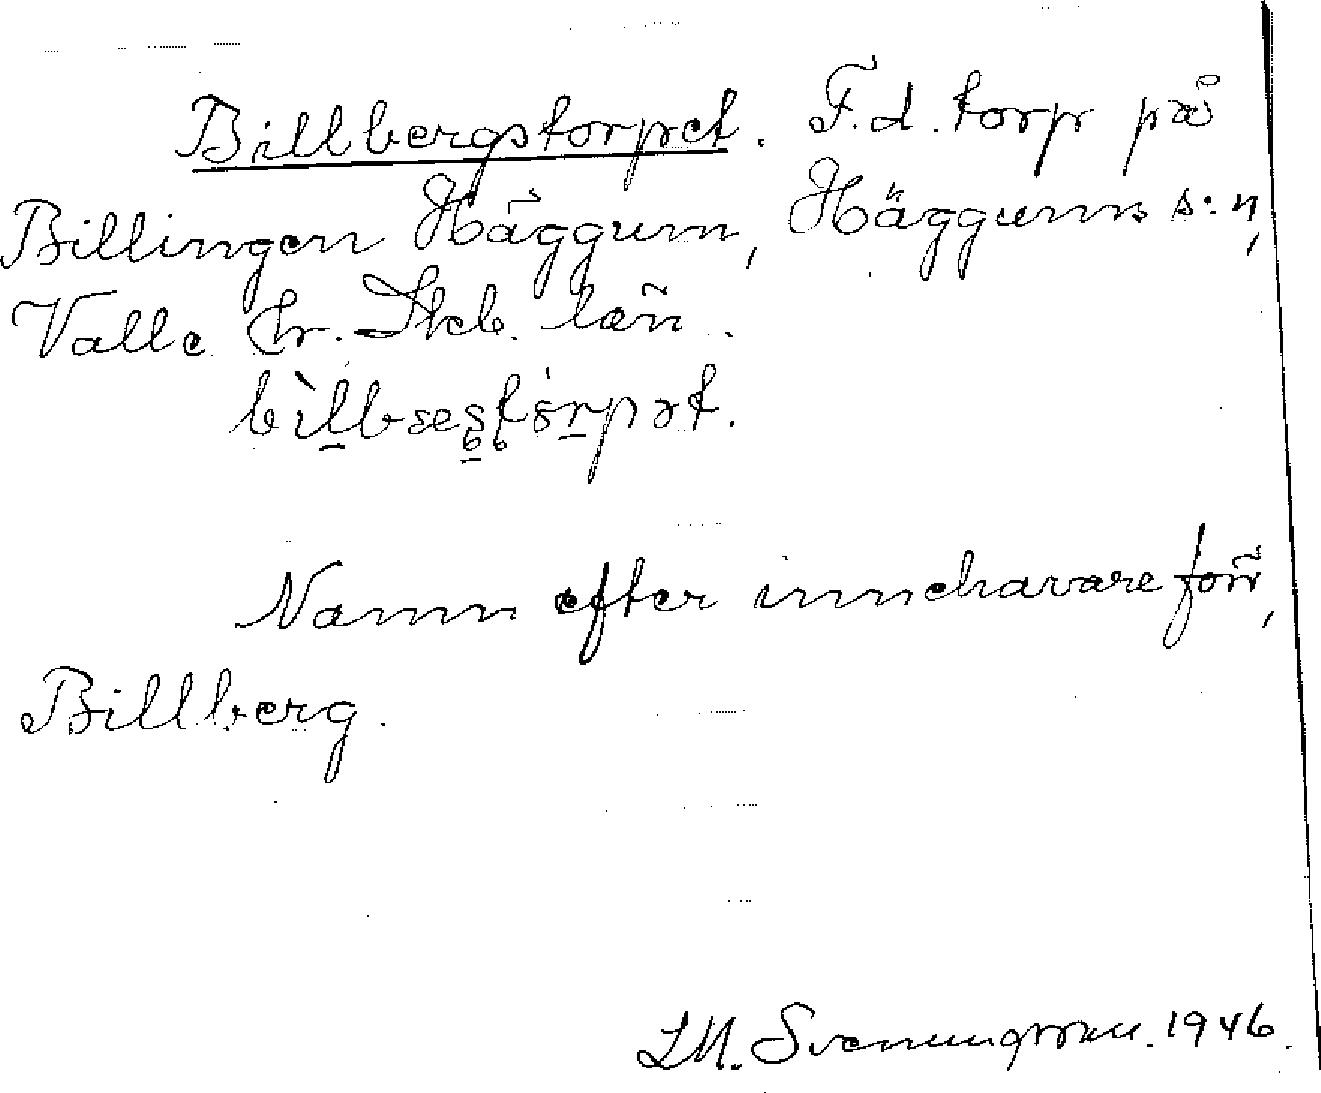 Billbergstorpet. F.d. torp på
Billingen Häggum, Häggums s:n,
Valle hr. Skb. län.
bìlbæstórpət.
Namn efter innehavare förr,
Billberg.
LM. Svenungsson. 1946.